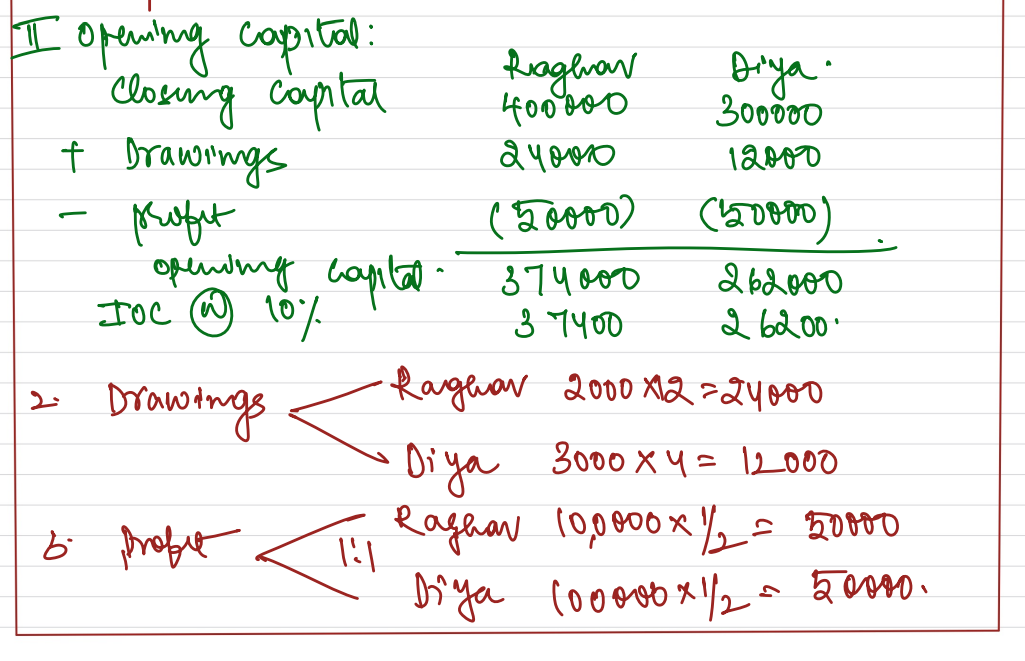 II Opening Capital:
Raghav Diya.
Closing Capital 400000 300000
+ Drawings 24000 12000
- Profit (50000) (50000)
opening capital. 374000 262000
IOC @ 10% 37400 26200.
2. Drawings Raghav 2000 X12 = 24000
Diya 3000 X 4 = 12000
Raghav 10,0000 x 1/2 = 50000
b. Profit 1:1
Diya 100000 x 1/2 = 50000.